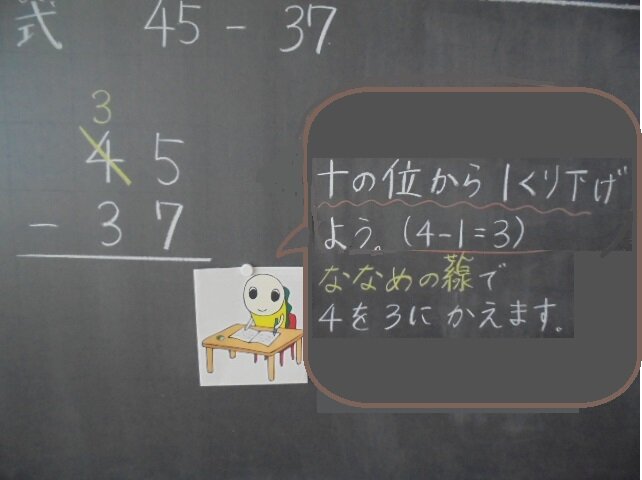 式 45 - 37
3
4 5
- 3 7
十の位から1くり下げ
よう。(4-1=3)
ななめの線で
4を3にかえます。